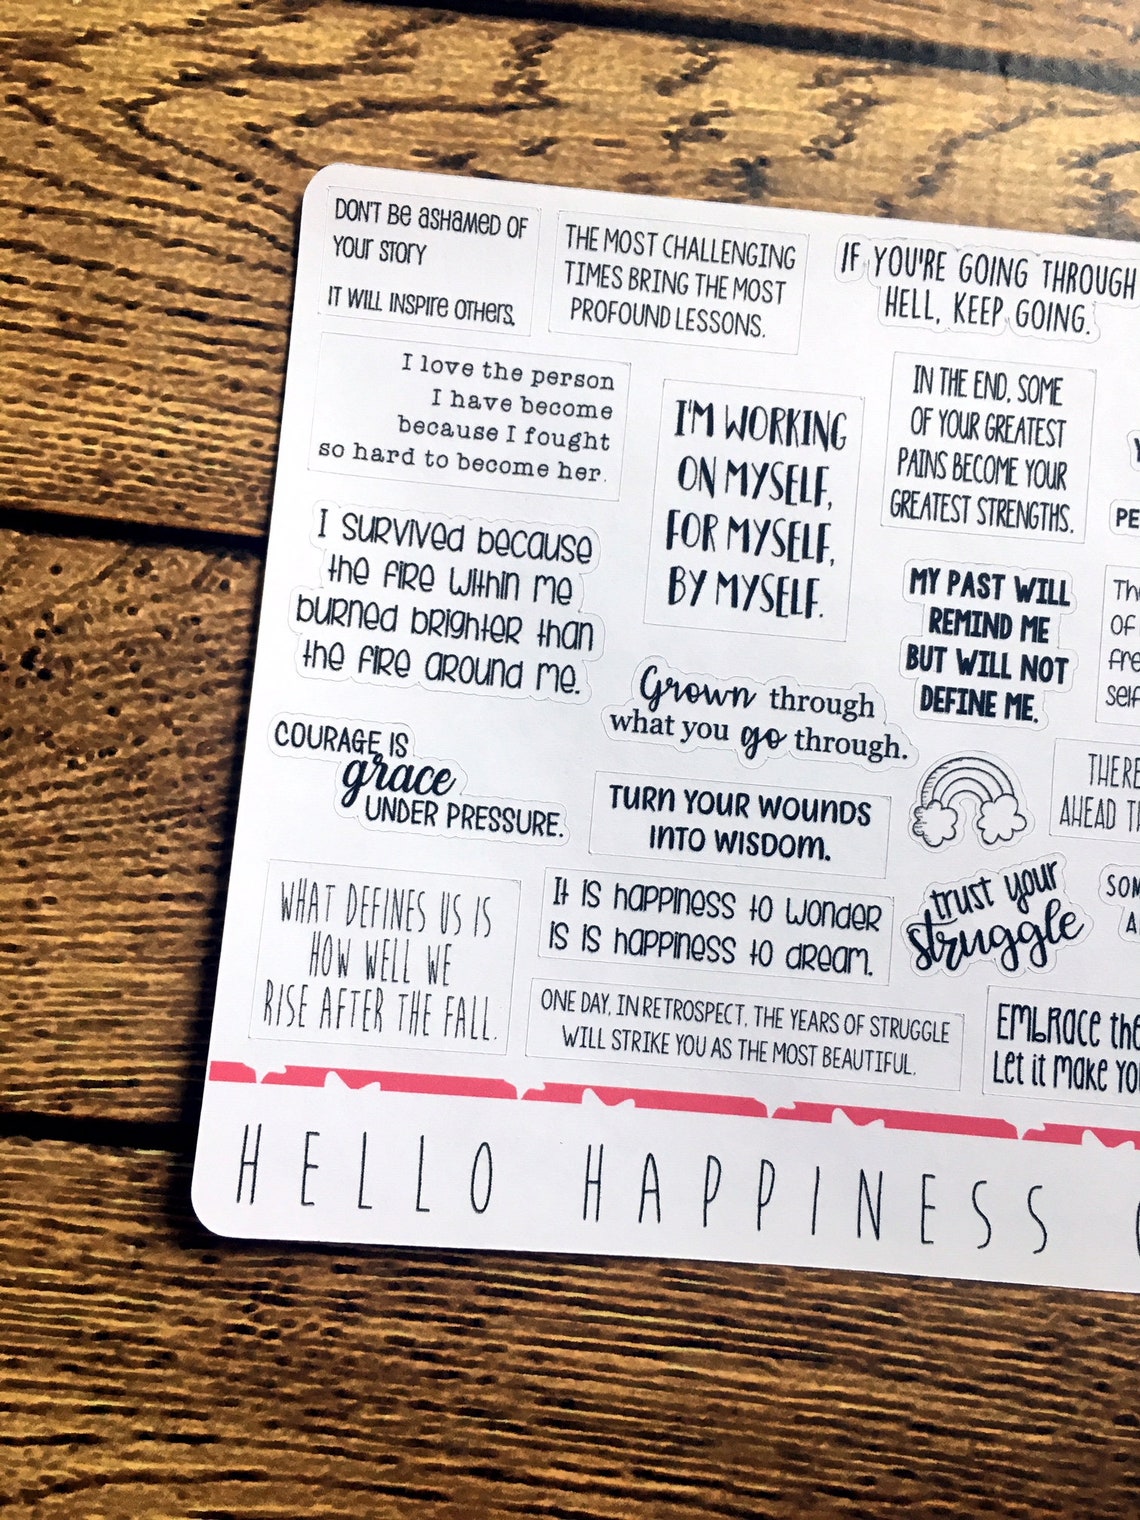 DON'T BE ASHAMED OF
YOUR STORY
IT WILL INSPIRE OTHERS.
THE MOST CHALLENGING
TIMES BRING THE MOST
PROFOUND LESSONS.
IF YOU'RE GOING THROUGH
HELL, KEEP GOING.
I love the person
I have become
because I fought
so hard to become her.
I'M WORKING
ON MYSELF,
FOR MYSELF,
BY MYSELF.
IN THE END, SOME
OF YOUR GREATEST
PAINS BECOME YOUR
GREATEST STRENGTHS.
I survived because
the fire within me
burned brighter than
the fire around me.
MY PAST WILL
REMIND ME
BUT WILL NOT
DEFINE ME.
Grown through
what you go through.
COURAGE IS
grace
UNDER PRESSURE.
TURN YOUR WOUNDS
INTO WISDOM.
THERE
AHEAD
WHAT DEFINES US IS
HOW WELL WE
RISE AFTER THE FALL.
It is happiness to wonder
is is happiness to dream.
trust your
struggle
ONE DAY, IN RETROSPECT, THE YEARS OF STRUGGLE
WILL STRIKE YOU AS THE MOST BEAUTIFUL.
Embrace the
Let it make
HELLO HAPPINESS